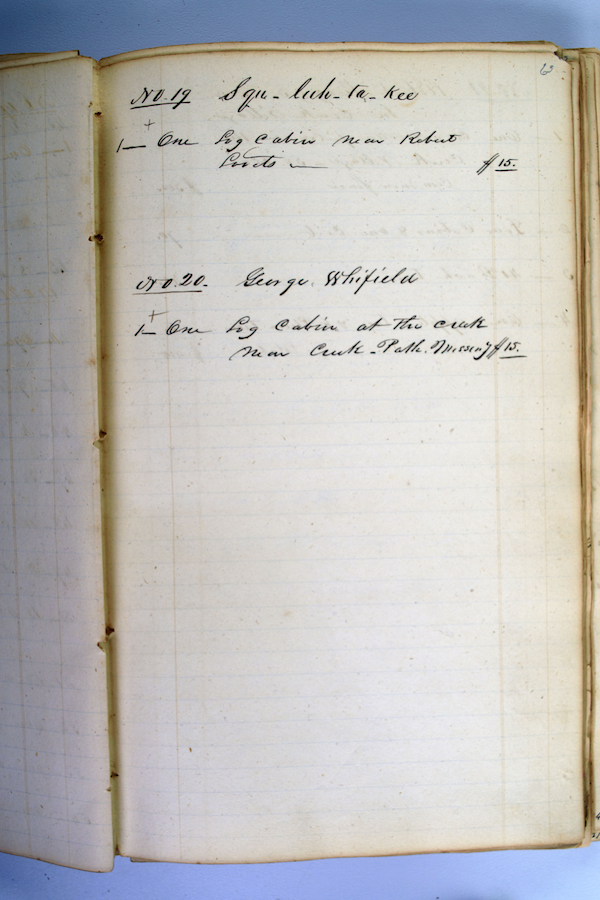 63
No. 19 Squ-luh-ta-kee
1 One Log Cabin near Robert
Lovets $15.
No. 20. George Whifield
1 One Log Cabin at the creek
near Creek-Path. Missiny $15.